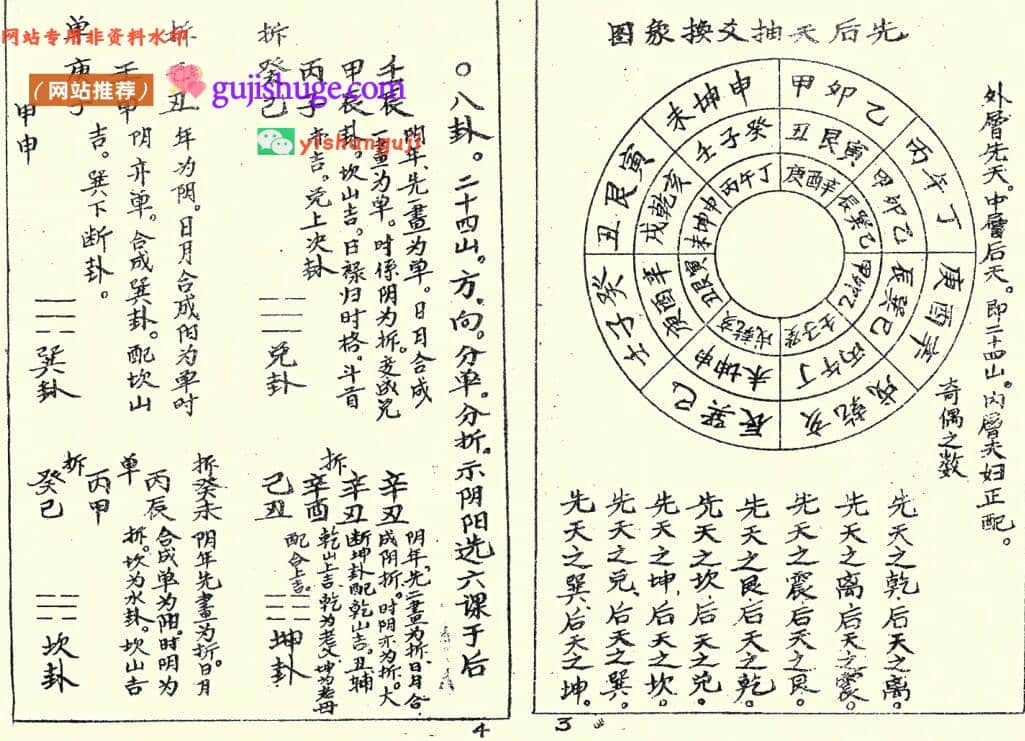 先后天抽爻换象图
外层先天。中层后天。即二十四山。内层夫妇正配。
奇偶之数
甲卯乙
丙午丁
庚酉辛
戌乾亥
辰巽巳
壬子癸
丑艮寅
未坤申
丑艮寅
甲卯乙
辰巽巳
丙午丁
未坤申
庚酉辛
戌乾亥
壬子癸
庚酉辛
辰巽巳
甲卯乙
壬子癸
戌乾亥
丑艮寅
未坤申
丙午丁
先天之乾后天之离。
先天之离后天之震。
先天之震后天之艮。
先天之艮后天之乾。
先天之坎后天之兑。
先天之坤后天之坎。
先天之兑后天之巽。
先天之巽后天之坤。
3
○八卦。二十四山。方。向。分单。分拆。示阴阳选六课于后
拆
壬辰
甲辰
丙子
癸巳
阴年、先一畫为单。日月合成
一畫为单。时係阴为拆。变成兑
卦。坎山吉。日禄归时格。斗首
亦吉。兑上次卦
兑卦
拆
单
辛丑
壬申
庚子
甲申
年为阴。日月合成阳为单时
阴亦单。合成巽卦。配坎山
吉。巽下断卦。
巽卦
拆
辛丑
辛丑
辛酉
己丑
阴年、先二畫为拆、日月合
成阴拆。时阴亦为拆。大
断坤卦配乾山吉。丑辅
乾山上吉。乾为老父、坤为老母
配合上吉。
坤卦
拆
单
拆
癸未
丙辰
丙甲
癸巳
阴年先畫为拆日月
合成单为阳。时阴为
拆。坎为水卦。坎山吉
坎卦
4
网站专用非资料水印
(网站推荐)
gujishuge.com
yishunguji